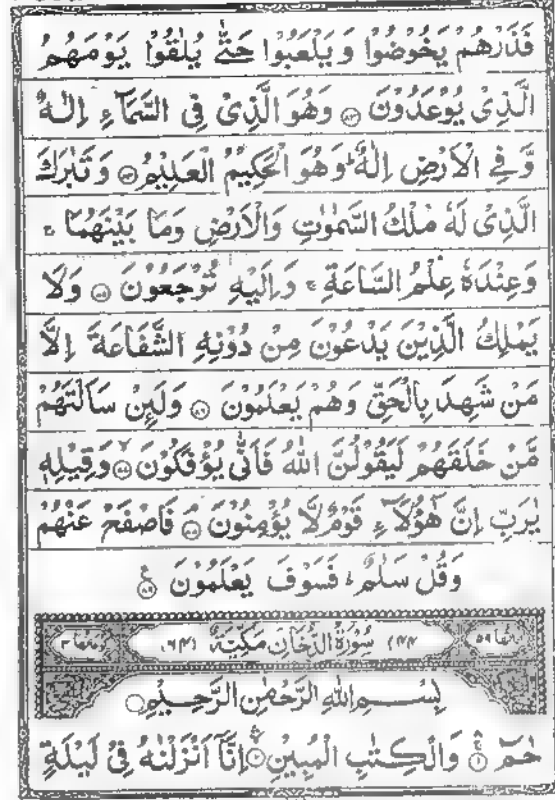 فَذَرْهُمْ يَخُوْضُوْا وَيَلْعَبُوْا حَتّٰى يُلٰقُوْا يَوْمَهُمُ
الَّذِيْ يُوْعَدُوْنَ ﴿۸۳﴾ وَهُوَ الَّذِيْ فِي السَّمَآءِ اِلٰهٌ
وَّفِي الْاَرْضِ اِلٰهٌ ؕ وَهُوَ الْحَكِيْمُ الْعَلِيْمُ ﴿۸۴﴾ وَتَبٰرَكَ
الَّذِيْ لَهٗ مُلْكُ السَّمٰوٰتِ وَالْاَرْضِ وَمَا بَيْنَهُمَا ۚ
وَعِنْدَهٗ عِلْمُ السَّاعَةِ ۚ وَاِلَيْهِ تُرْجَعُوْنَ ﴿۸۵﴾ وَلَا
يَمْلِكُ الَّذِيْنَ يَدْعُوْنَ مِنْ دُوْنِهِ الشَّفَاعَةَ اِلَّا
مَنْ شَهِدَ بِالْحَقِّ وَهُمْ يَعْلَمُوْنَ ﴿۸۶﴾ وَلَئِنْ سَاَلْتَهُمْ
مَّنْ خَلَقَهُمْ لَيَقُوْلُنَّ اللّٰهُ فَاَنّٰى يُؤْفَكُوْنَ ﴿۸۷﴾ وَقِيْلِهٖ
يٰرَبِّ اِنَّ هٰٓؤُلَآءِ قَوْمٌ لَّا يُؤْمِنُوْنَ ﴿۸۸﴾ فَاصْفَحْ عَنْهُمْ
وَقُلْ سَلٰمٌ ؕ فَسَوْفَ يَعْلَمُوْنَ ﴿۸۹﴾
اٰيَاتُهَا ۵۹ (۴۴) سُوْرَةُ الدُّخَانِ مَكِّيَّةٌ (۶۴) رُكُوْعَاتُهَا ۳
بِسْمِ اللّٰهِ الرَّحْمٰنِ الرَّحِيْمِ
حٰمٓ ﴿۱﴾ وَالْكِتٰبِ الْمُبِيْنِ ﴿۲﴾ اِنَّآ اَنْزَلْنٰهُ فِيْ لَيْلَةٍ